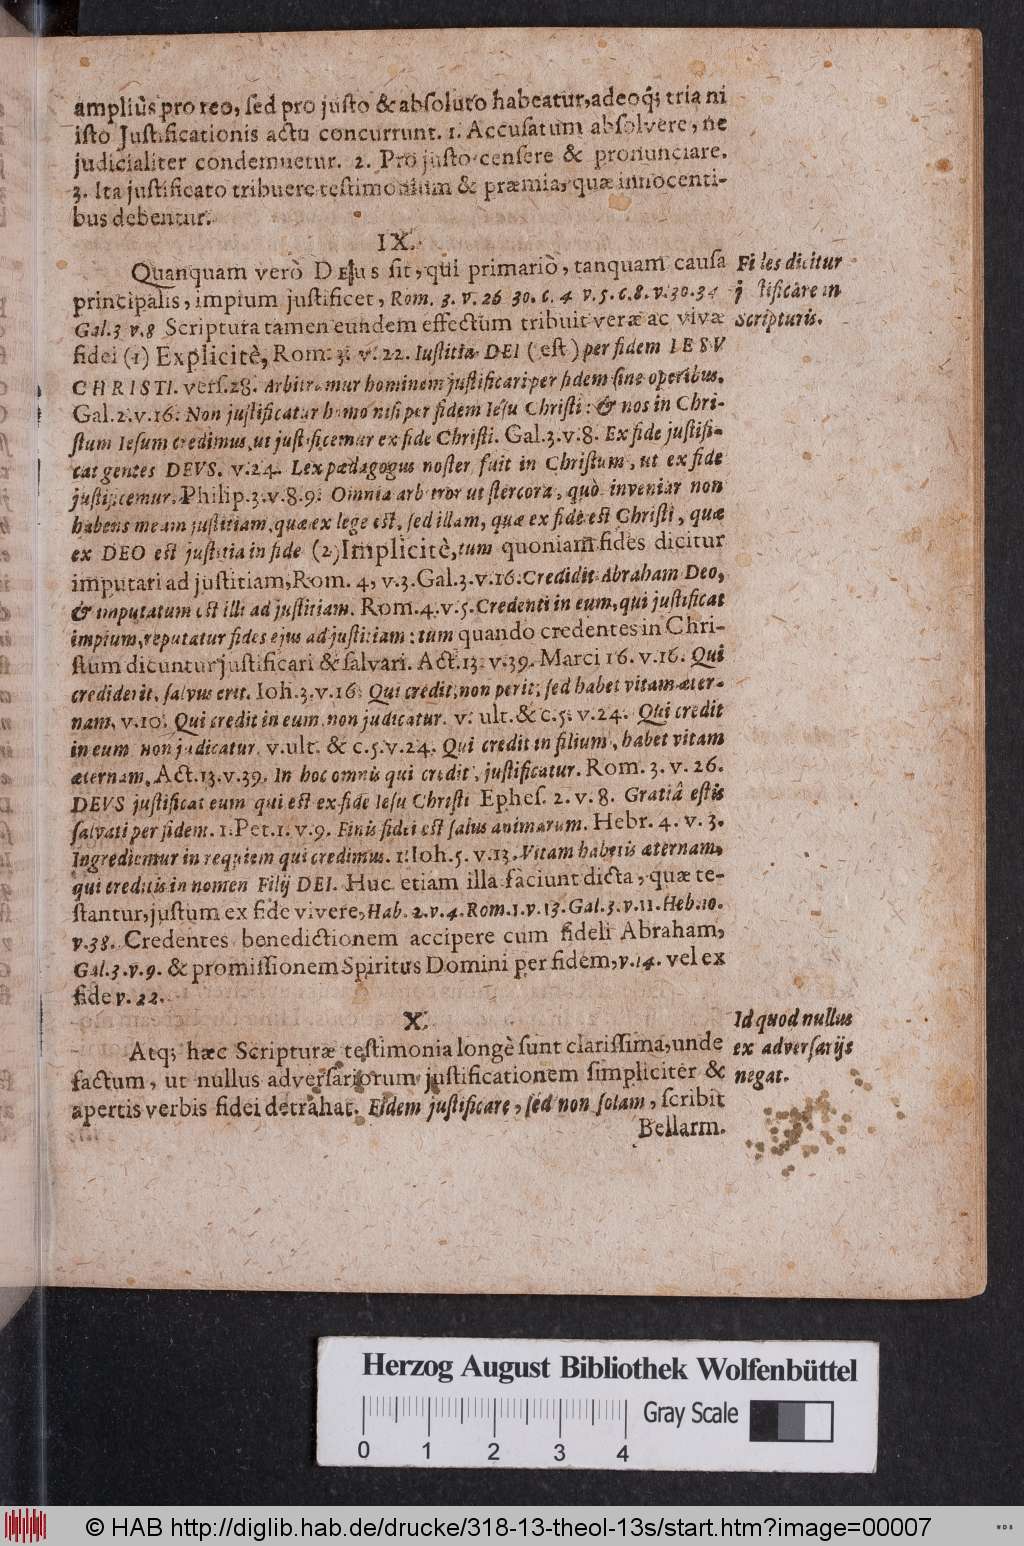 ampliùs pro reo, ſed pro juſto & abſoluto habeatur, adeoq; tria ni
iſto Juſtificationis actu concurrunt. 1. Accuſatum abſolvere, ne
judicialiter condemnetur. 2. Pro juſto cenſere & pronunciare.
3. Ita juſtificato tribuere teſtimonium & præmia, quæ innocenti-
bus debentur.
IX.
Quanquam verò DEus ſit, qui primariò, tanquam cauſa
principalis, impium juſtificet, Rom. 3. v. 26 30. c. 4 v. 5. c. 8. v. 30. 34
Gal. 3 v. 8 Scriptura tamen eundem effectum tribuit veræ ac vivæ
fidei (1) Explicitè, Rom. 3. v. 22. Iuſtitia DEI (eſt) per fidem IESV
CHRISTI. verſ. 28. Arbitramur hominem juſtificari per fidem ſine operibus.
Gal. 2. v. 16. Non juſtificatur homo niſi per fidem Ieſu Chriſti: & nos in Chri-
ſtum Ieſum credimus, ut juſtificemur ex fide Chriſti. Gal. 3. v. 8. Ex fide juſtifi-
cat gentes DEVS. v. 24. Lex pædagogus noſter fuit in Chriſtum, ut ex fide
juſtificemur. Philip. 3. v. 8. 9. Omnia arbitror ut ſtercora, quò inveniar non
habens meam juſtitiam, quæ ex lege eſt, ſed illam, quæ ex fide eſt Chriſti, quæ
ex DEO eſt juſtitia in fide (2) Implicitè, tum quoniam fides dicitur
imputari ad juſtitiam, Rom. 4, v. 3. Gal. 3. v. 16. Credidit Abraham Deo,
& imputatum eſt illi ad juſtitiam. Rom. 4. v. 5. Credenti in eum, qui juſtificat
impium, reputatur fides ejus ad juſtitiam: tum quando credentes in Chri-
ſtum dicuntur juſtificari & ſalvari. Act. 13. v. 39. Marci 16. v. 16. Qui
crediderit, ſalvus erit. Ioh. 3. v. 16. Qui credit, non perit, ſed habet vitam æter-
nam, v. 10. Qui credit in eum, non judicatur. v. ult. & c. 5. v. 24. Qui credit
in eum non judicatur, v. ult. & c. 5. v. 24. Qui credit in filium, habet vitam
æternam, Act. 13. v. 39. In hoc omnis qui credit, juſtificatur. Rom. 3. v. 26.
DEVS juſtificat eum qui eſt ex fide Ieſu Chriſti Epheſ. 2. v. 8. Gratiâ eſtis
ſalvati per fidem. 1. Pet. 1. v. 9. Finis fidei eſt ſalus animarum. Hebr. 4. v. 3.
Ingrediemur in requiem qui credimus. 1. Ioh. 5. v. 13. Vitam habetis æternam,
qui creditis in nomen Filij DEI. Huc etiam illa faciunt dicta, quæ te-
ſtantur, juſtum ex fide vivere, Hab. 2. v. 4. Rom. 1. v. 13. Gal. 3. v. 11. Heb. 10.
v. 38. Credentes benedictionem accipere cum fideli Abraham,
Gal. 3. v. 9. & promiſſionem Spiritus Domini per fidem, v. 14. vel ex
fide v. 22.
X.
Atq; hæc Scripturæ teſtimonia longè ſunt clariſſima, unde
factum, ut nullus adverſariorum juſtificationem ſimpliciter &
apertis verbis fidei detrahat. Fidem juſtificare, ſed non ſolam, ſcribit
Bellarm.
Fides dicitur
juſtificare in
Scripturis.
Id quod nullus
ex adverſarijs
negat.
Herzog August Bibliothek Wolfenbüttel
Gray Scale
0 1 2 3 4
© HAB http://diglib.hab.de/drucke/318-13-theol-13s/start.htm?image=00007